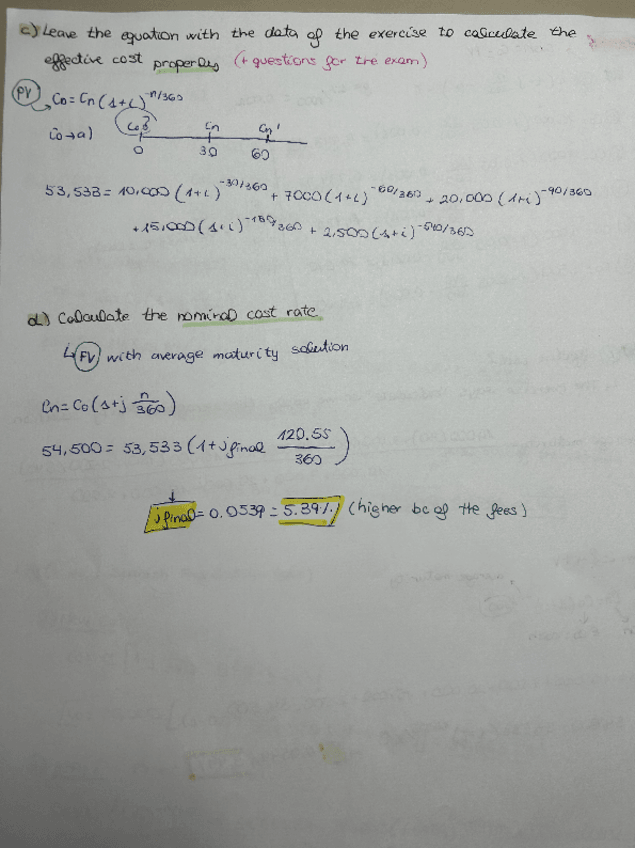 c) Leave the equation with the data of the exercise to calculate the
effective cost properly (+ questions for the exam)
PV Co = Cn (1+i)^-n/360
Co→a) Co? Cn Cn'
0 30 60
53,533 = 10,000 (1+i)^-30/360 + 7000 (1+i)^-60/360 + 20,000 (1+i)^-90/360
+ 15,000 (1+i)^-180/360 + 2,500 (1+i)
d) Calculate the nominal cost rate
↳ FV with average maturity solution
Cn = Co (1+j n/360)
54,500 = 53,533 (1 + j final 120.55/360)
↓
j final = 0.0539 = 5.39% (higher bc of the fees)